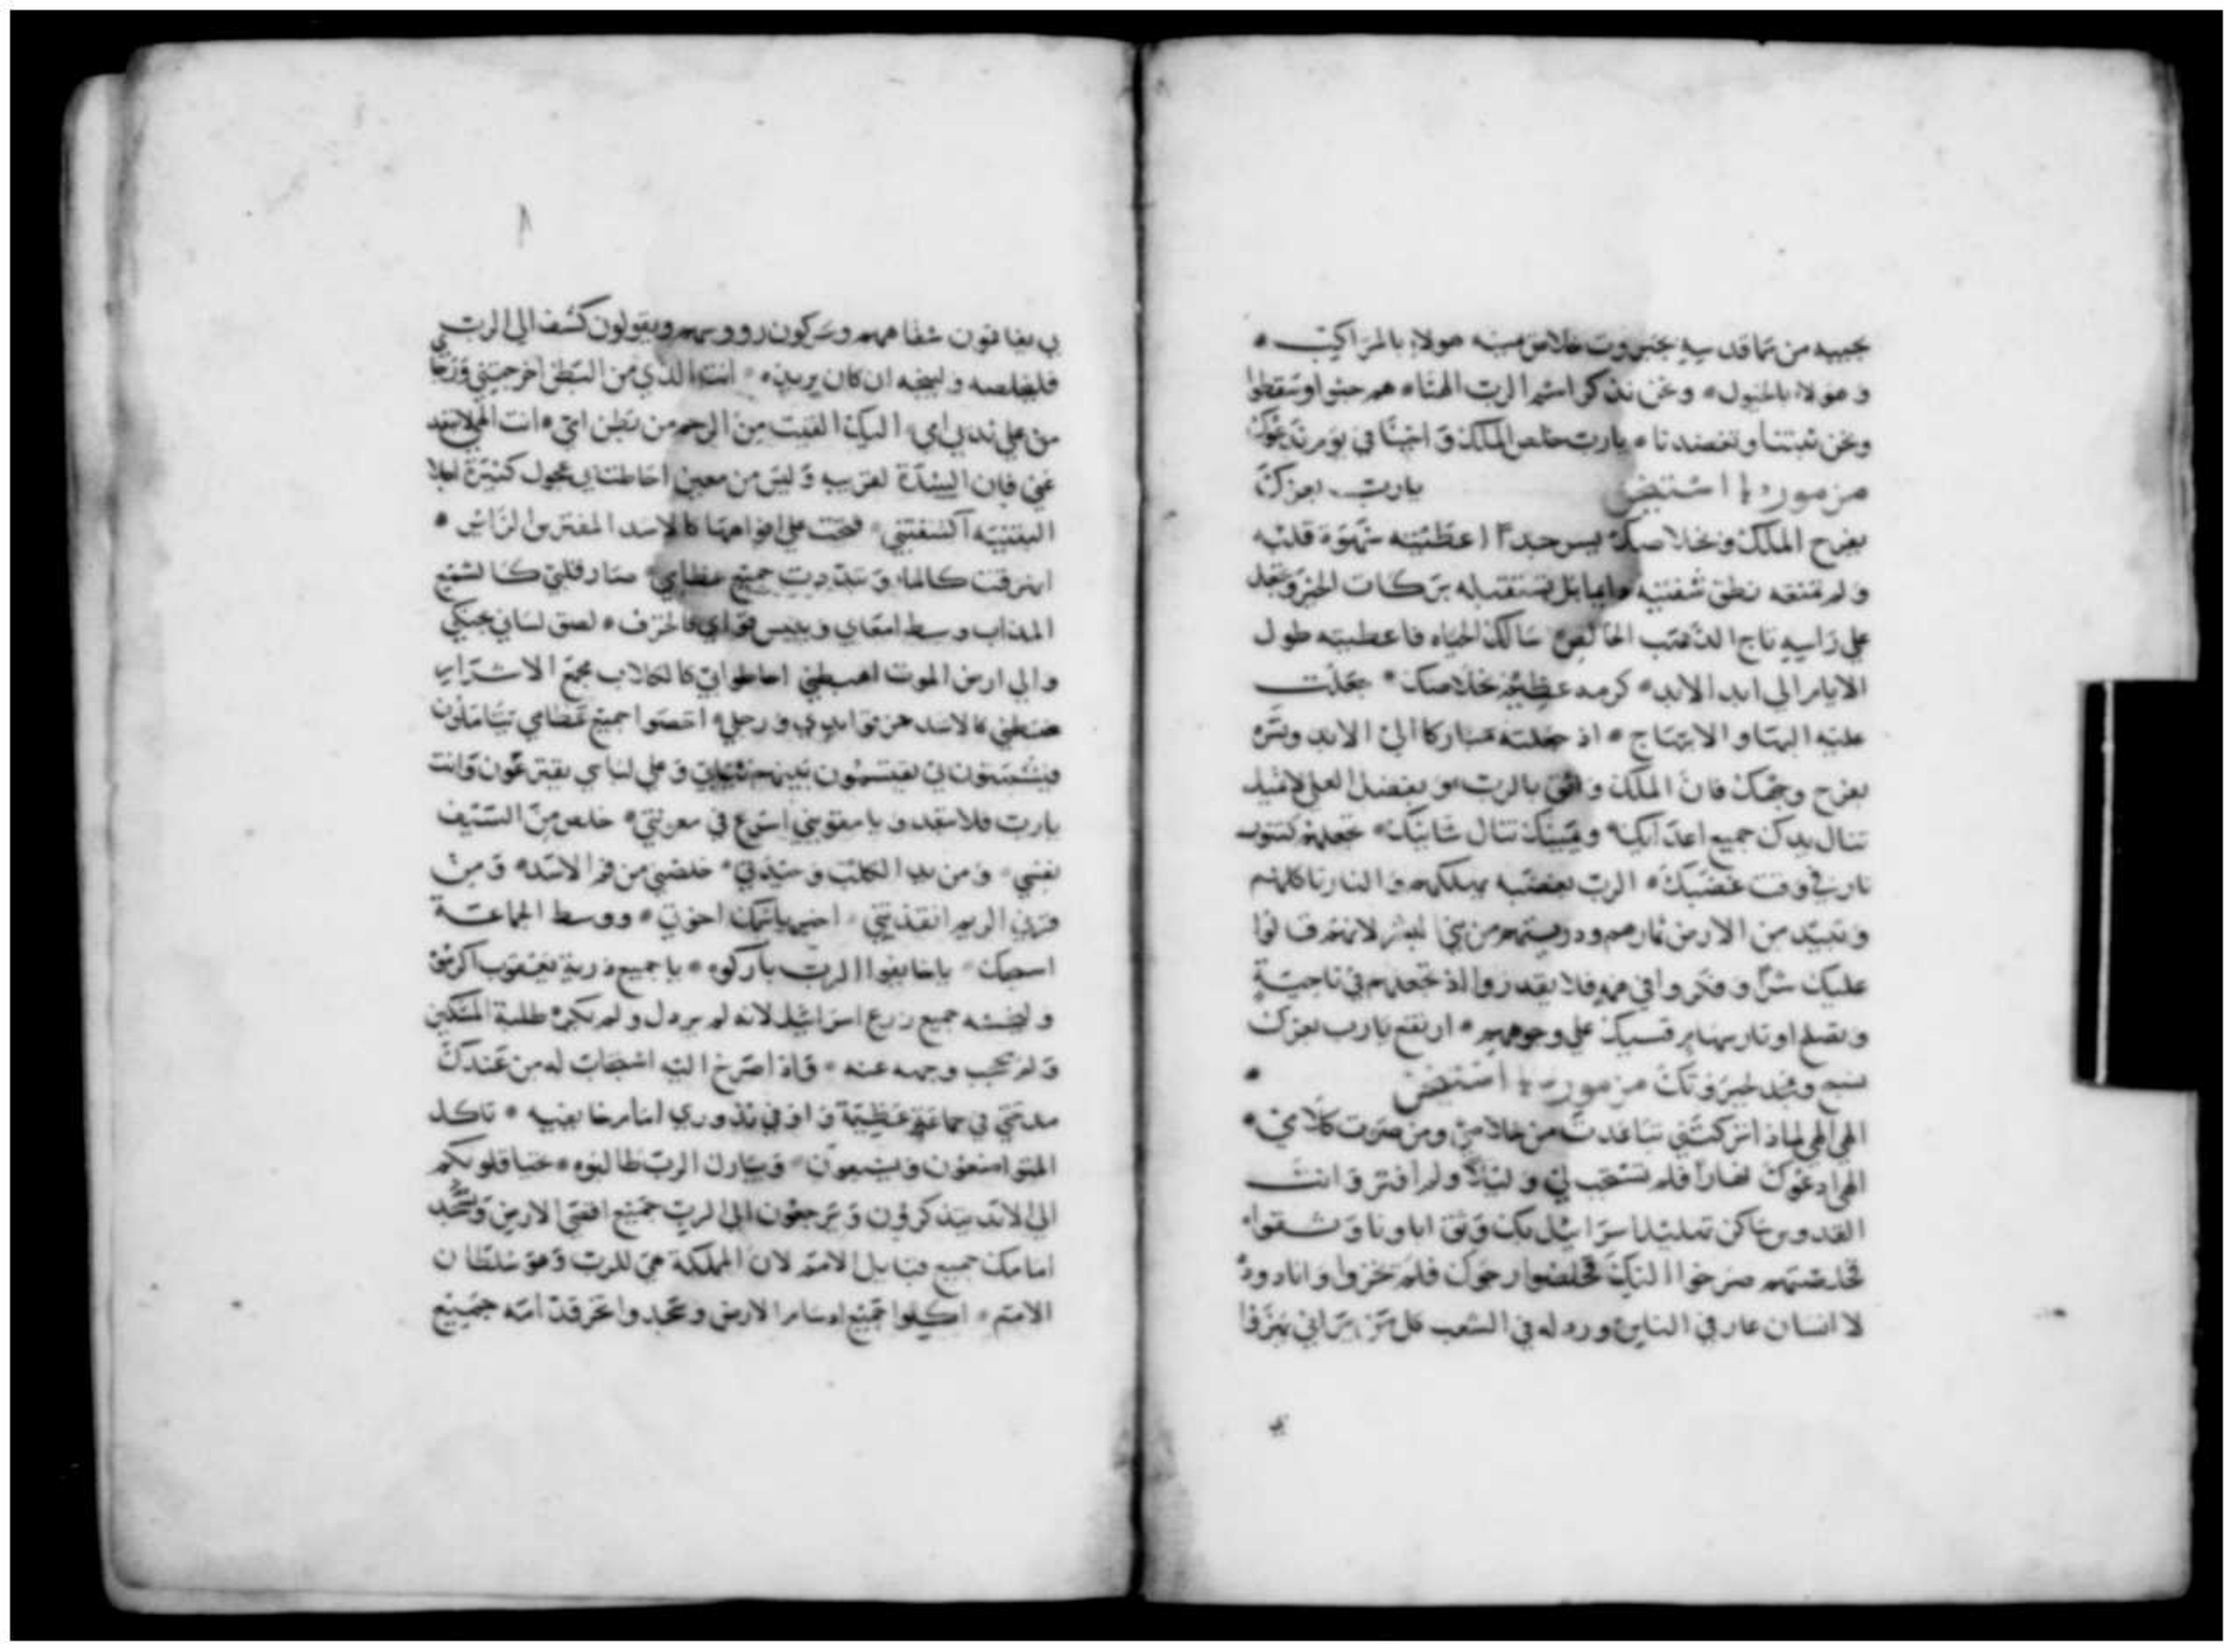 يجيبه من سما قدسه بجبروت خلاص يمينه هولاء بالمراكب
وهولاء بالخيول ونحن نذكر اسم الرب الهنا هم جثوا وسقطوا
ونحن ثبتنا وتعضدنا يارب خلص الملك واجبنا في يوم ندعوك
مزمور يارب بعزك
يفرح الملك وبخلاصك يسر جدا اعطيته شهوة قلبه
ولم تمنعه نطق شفتيه بل تستقبله بركات الخير وتعقد
علي راسه تاج الذهب سالك الحياه فاعطيته طول
الايام الي ابد الابد كرمه عظيم بخلاصك جعلت
عليه البها والابتهاج اذ جعلته مباركا الي الابد وتسره
بفرح وجهك فان الملك واثق بالرب وبفضل العلي لا يميل
تنال يدك جميع اعدائك ويمينك تنال شانيك تجعلهم كتنور
نار في وقت غضبك الرب بغضبه يهلكهم والنار تاكلهم
وتبيد من الارض ثمارهم وذريتهم من بني البشر لانهم قالوا
عليك شرا وفكروا في فلا يقدروا اذ تجعلهم في ناحية
وتصلح اوتار قسيك علي وجوههم ارتفع يارب بعزك
نسبح ونمجد جبروتك مزمور
الهي الهي لماذا تركتني تباعدت من خلاصي ومن صوت كلامي
الهي ادعوك نهارا فلم تستجب لي وليلا ولم افتر وانت
القدوس ساكن تهليل اسرائيل بك وثق اباونا وثقوا
فخلصتهم صرخوا اليك فخلصوا رجوك فلم يخزوا وانا دود
لا انسان عار في الناس ورذله في الشعب كل من راني يهزوا
بي شفاههم ويحركون رووسهم ويقولون كشف الي الرب
فليخلصه ولينجه ان كان يريده انت الذي من البطن اخرجتني ورجا
من علي ثديي امي اليك القيت من الرحم من بطن امي انت الهي لا تبعد
عني فان الشدة لقريبه وليس من معين احاطت بي عجول كثيرة
اكتنفتني فتحت علي افواهها كالاسد المفترس الزائر
اهرقت كالماء وتبددت جميع عظامي صار قلبي كالشمع
المذاب وسط امعاي ويبس قواي كالخزف لصق لساني بحنكي
والي ارض الموت اهبطني احاطوا بي كالكلاب مجمع الاشرار
كالاسد يدي ورجلي احصوا جميع عظامي يتاملون
ويشمتون بي يقتسمون بينهم ثيابي وعلي لباسي يقترعون وانت
يارب فلا تبعد ويا مقويني اسرع في معونتي خلص من السيف
نفسي ومن يد الكلب وحيدتي خلصني من فم الاسد ومن
قرون الريم انقذتني اخبر باسمك اخوتي ووسط الجماعة
اسبحك يا خايفوا الرب باركوه يا جميع ذرية يعقوب اكرموه
وليخشه جميع زرع اسرائيل لانه لم يرذل ولم يكره طلبة المسكين
ولم يحجب وجهه عنه واذا صرخ اليه استجاب له من عندك
مدحتي في جماعة عظيمة واوفي نذوري امام خايفيه تاكل
المتواضعون ويشبعون ويبارك الرب طالبوه تحيا قلوبكم
الي الابد يتذكرون ويرجعون الي الرب جميع اقصي الارض ويسجد
امامك جميع قبايل الامم لان المملكة هي للرب وهو سلطان
الامم اكلوا جميع الارض وسجدوا جميع